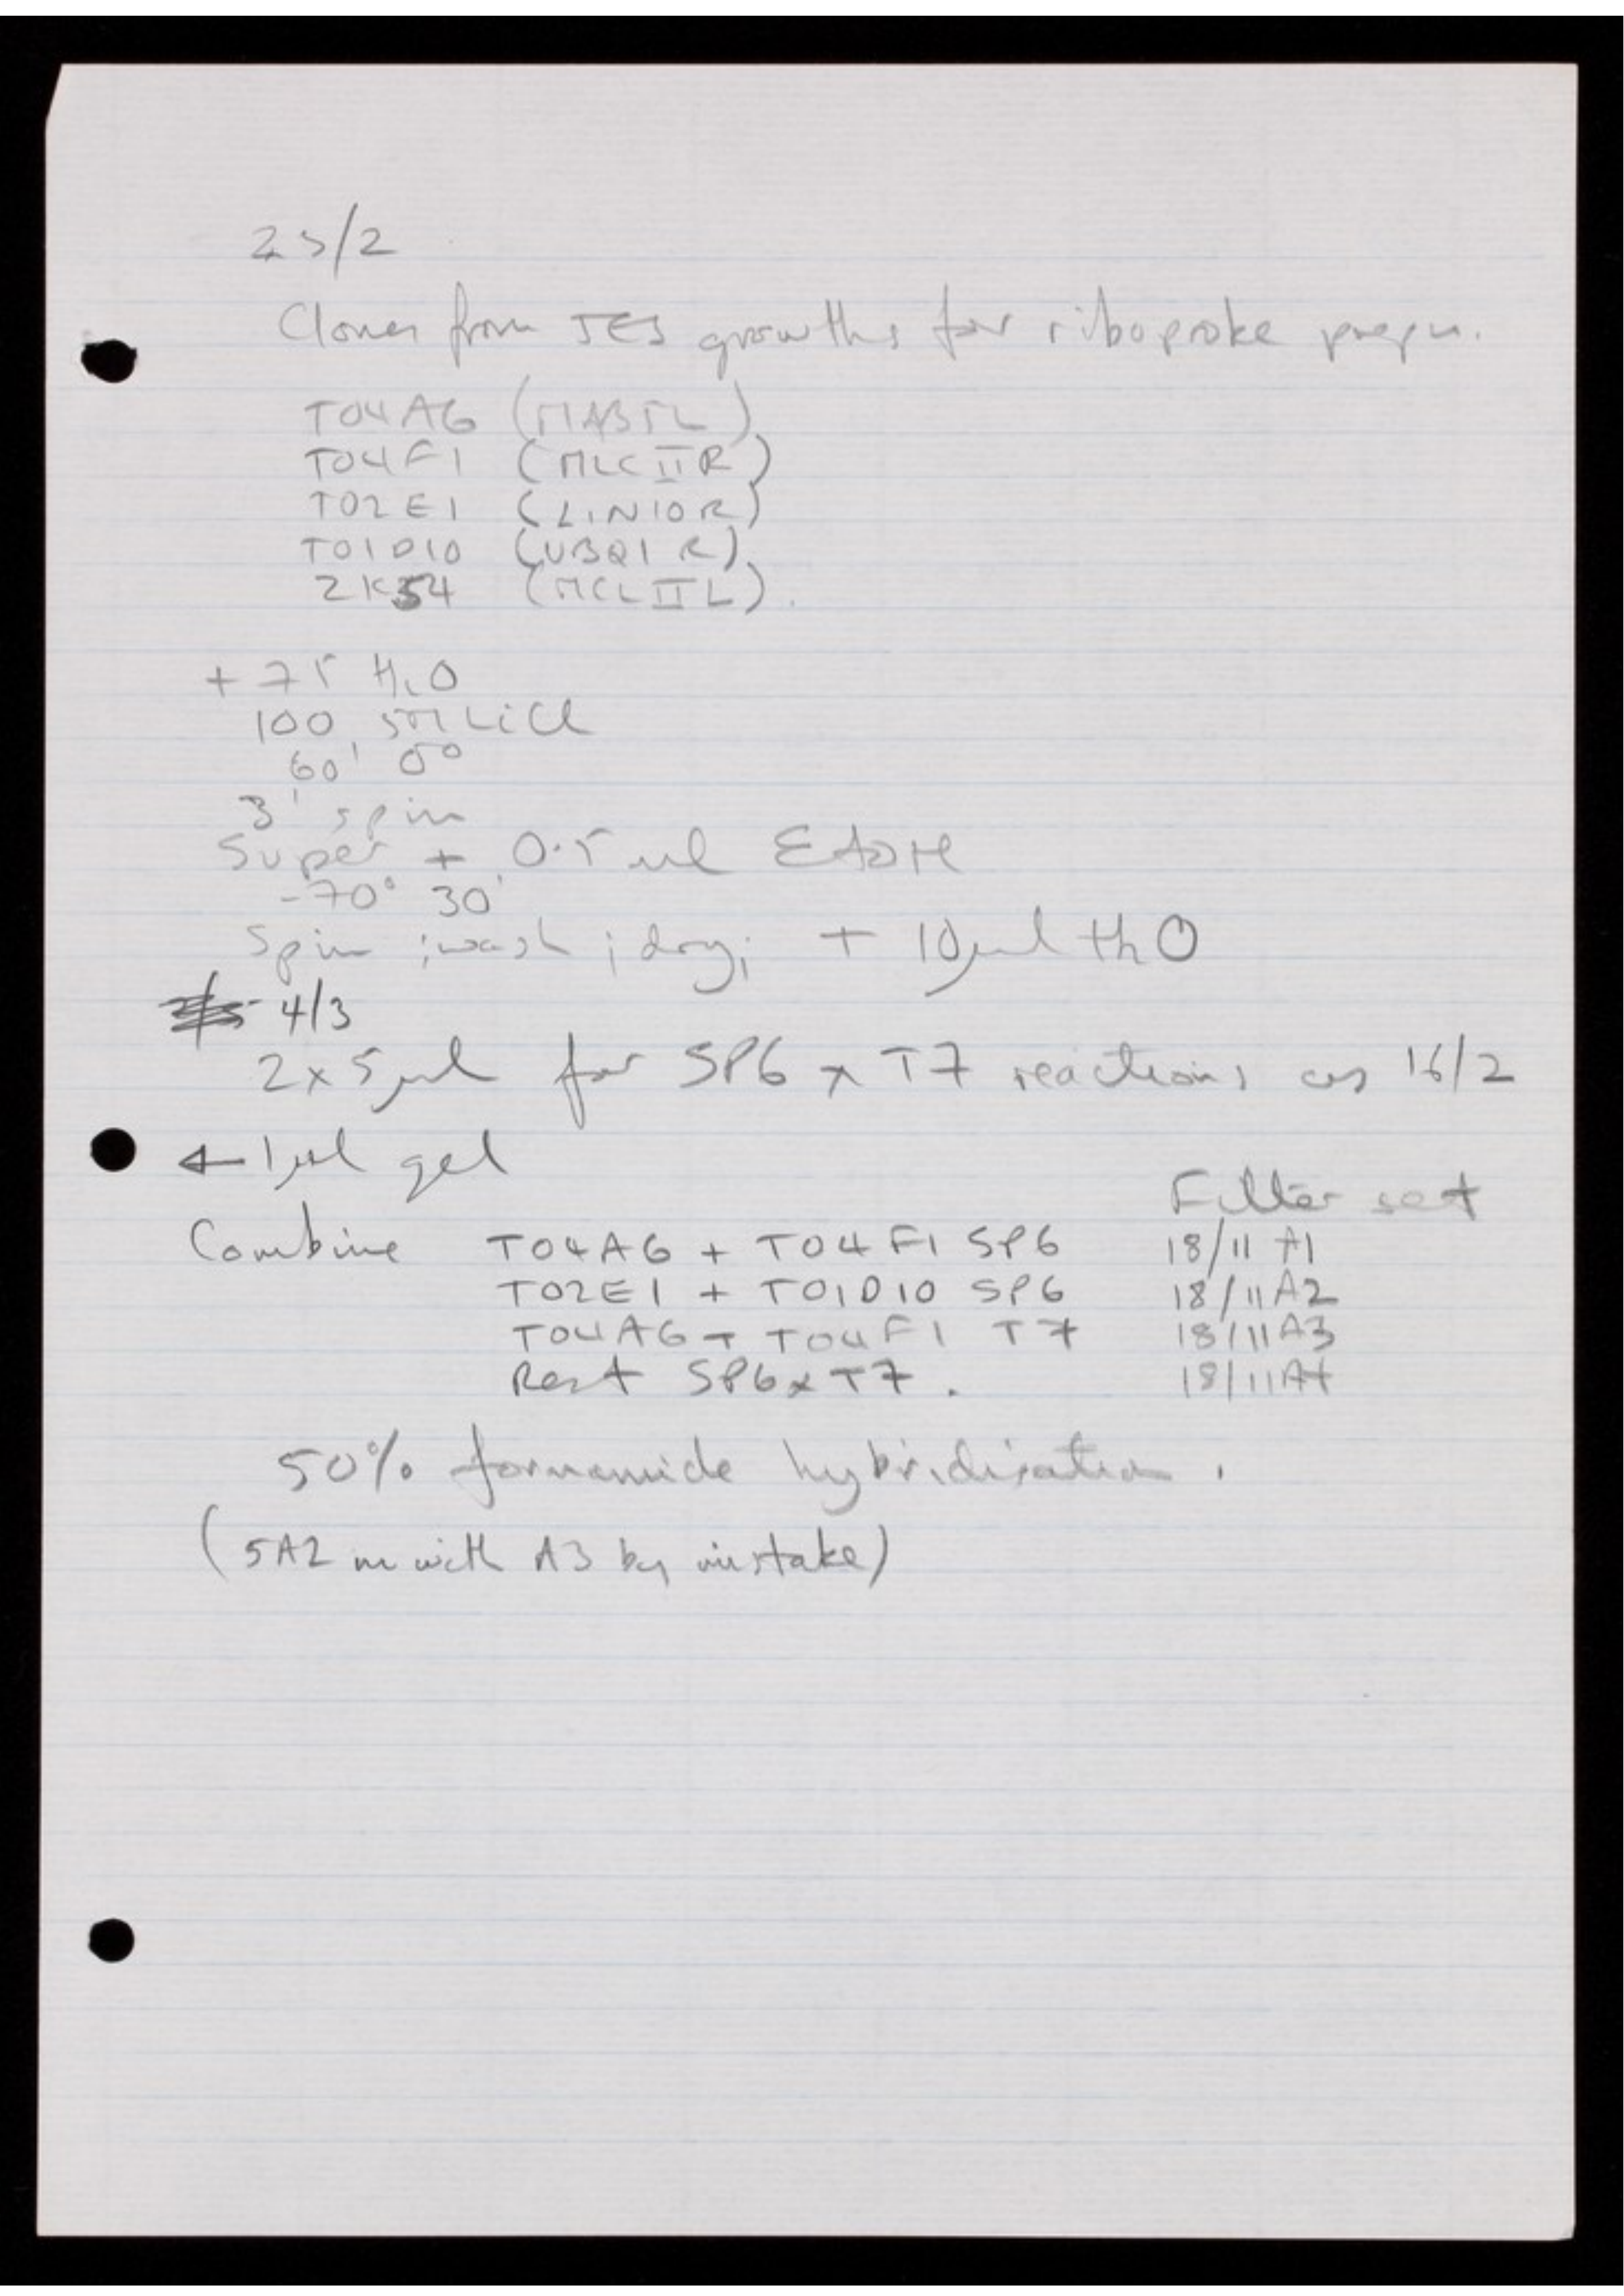 25/2
Clones from JES growths for riboprobe prepn.
T04A6 (MABTL)
T04F1 (MLCIIR)
T02E1 (LIN10R)
T01D10 (UBQ1R)
ZK54 (MCLIIL).
+ 75 H2O
100 5M LiCl
60' 0°
3' spin
Super + 0.5 ml EtOH
-70° 30'
Spin; wash; dry; + 10µl H2O
4/3
2x5µl for SP6 x T7 reactions as 16/2
← 1µl gel
Filter set
Combine T04A6 + T04F1 SP6 18/11 A1
T02E1 + T01D10 SP6 18/11 A2
T04A6 + T04F1 T7 18/11 A3
Rest SP6xT7. 18/11 A4
50% formamide hybridisation.
(5A2 in with A3 by mistake)